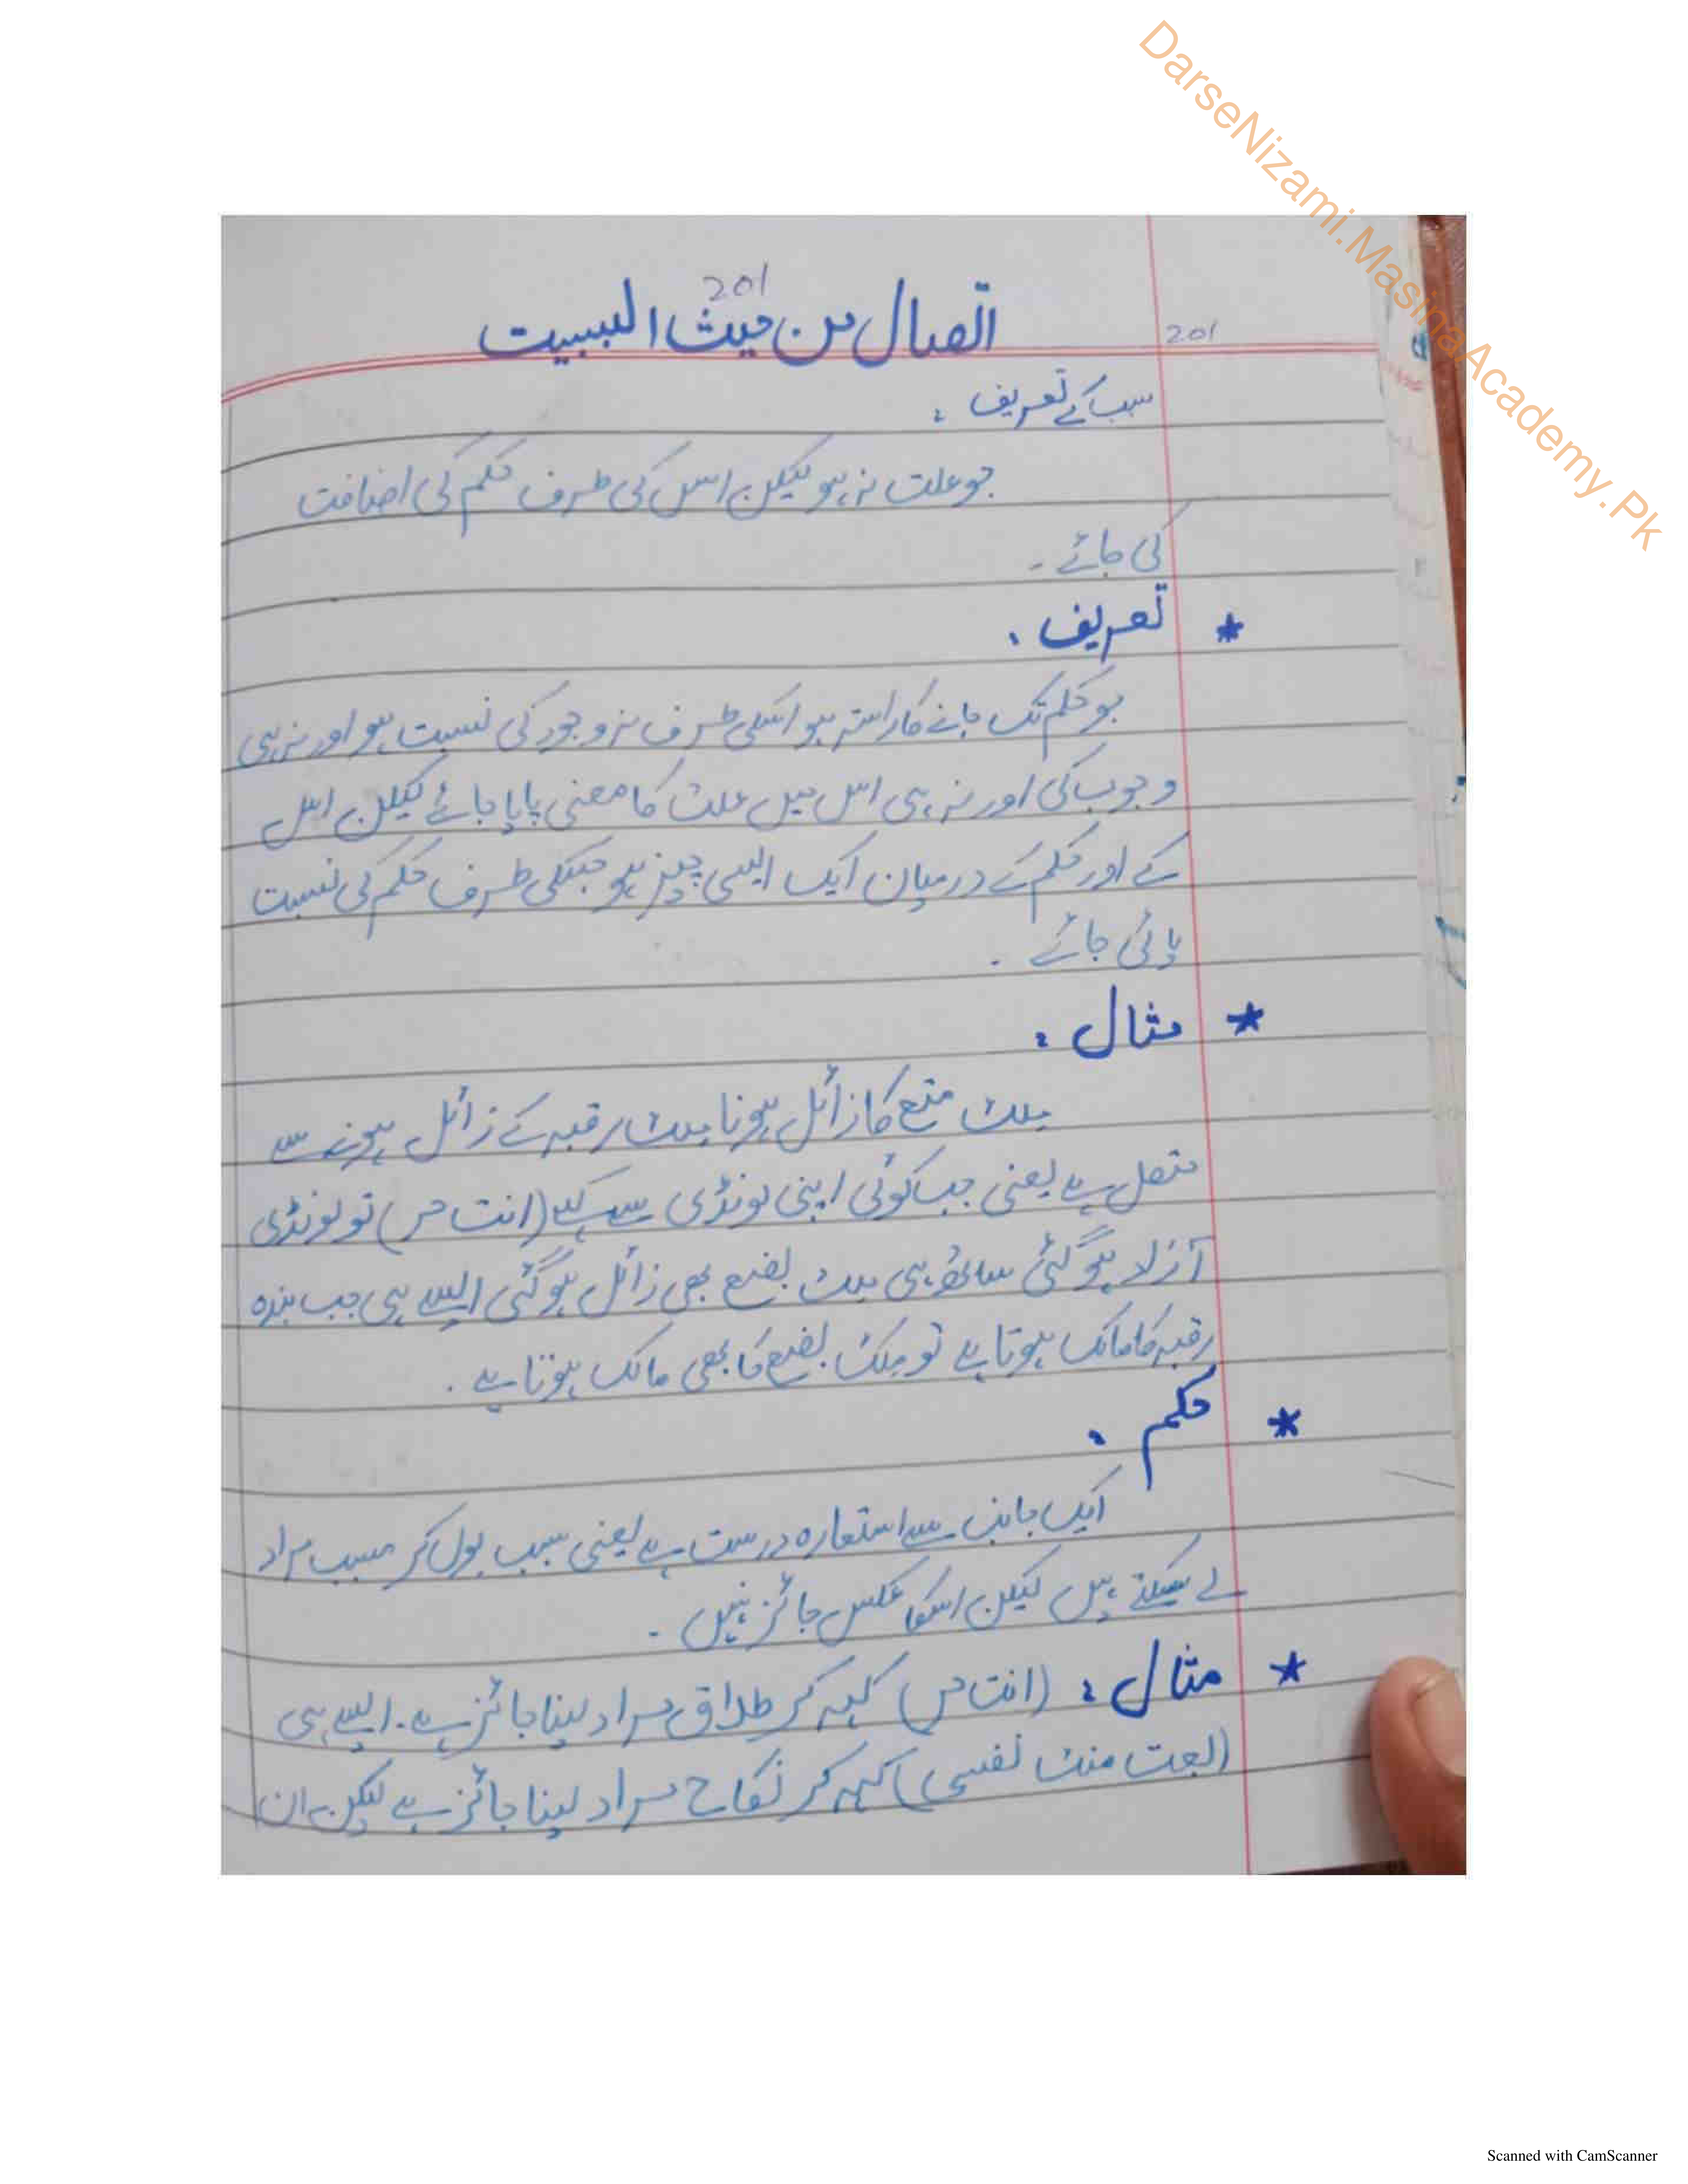 DarseNizami.MasinaAcademy.Pk
201
اتصال من حیث السببیت
201
سبب کے تعریف :
جو علت نہ ہو لیکن اس کی طرف حکم کی اضافت
کی جائے ۔
* تعریف :
جو حکم تک جانے کا راستہ ہو اسکی طرف نہ وجود کی نسبت ہو اور نہ ہی
وجوب کی اور نہ ہی اس میں علت کا معنی پایا جائے لیکن اس
کے اور حکم کے درمیان ایک ایسی چیز ہو جسکی طرف حکم کی نسبت
پائی جائے ۔
* مثال :
ملک متع کا زائل ہونا ملک رقبہ کے زائل ہونے سے
متصل ہے یعنی جب کوئی اپنی لونڈی سے کہے (انت حر) تو لونڈی
آزاد ہو گئی ساتھ ہی ملک بضع بھی زائل ہو گئی ایسے ہی جب بندہ
رقبہ کا مالک ہوتا ہے تو ملک بضع کا بھی مالک ہوتا ہے ۔
* حکم :
ایک جانب سے استعارہ درست ہے یعنی سبب بول کر مسبب مراد
لے سکتے ہیں لیکن اسکا عکس جائز نہیں ۔
* مثال : (انت حر) کہہ کر طلاق مراد لینا جائز ہے ۔ ایسے ہی
(بعت منک نفسی) کہہ کر نکاح مراد لینا جائز ہے لیکن ان
Scanned with CamScanner